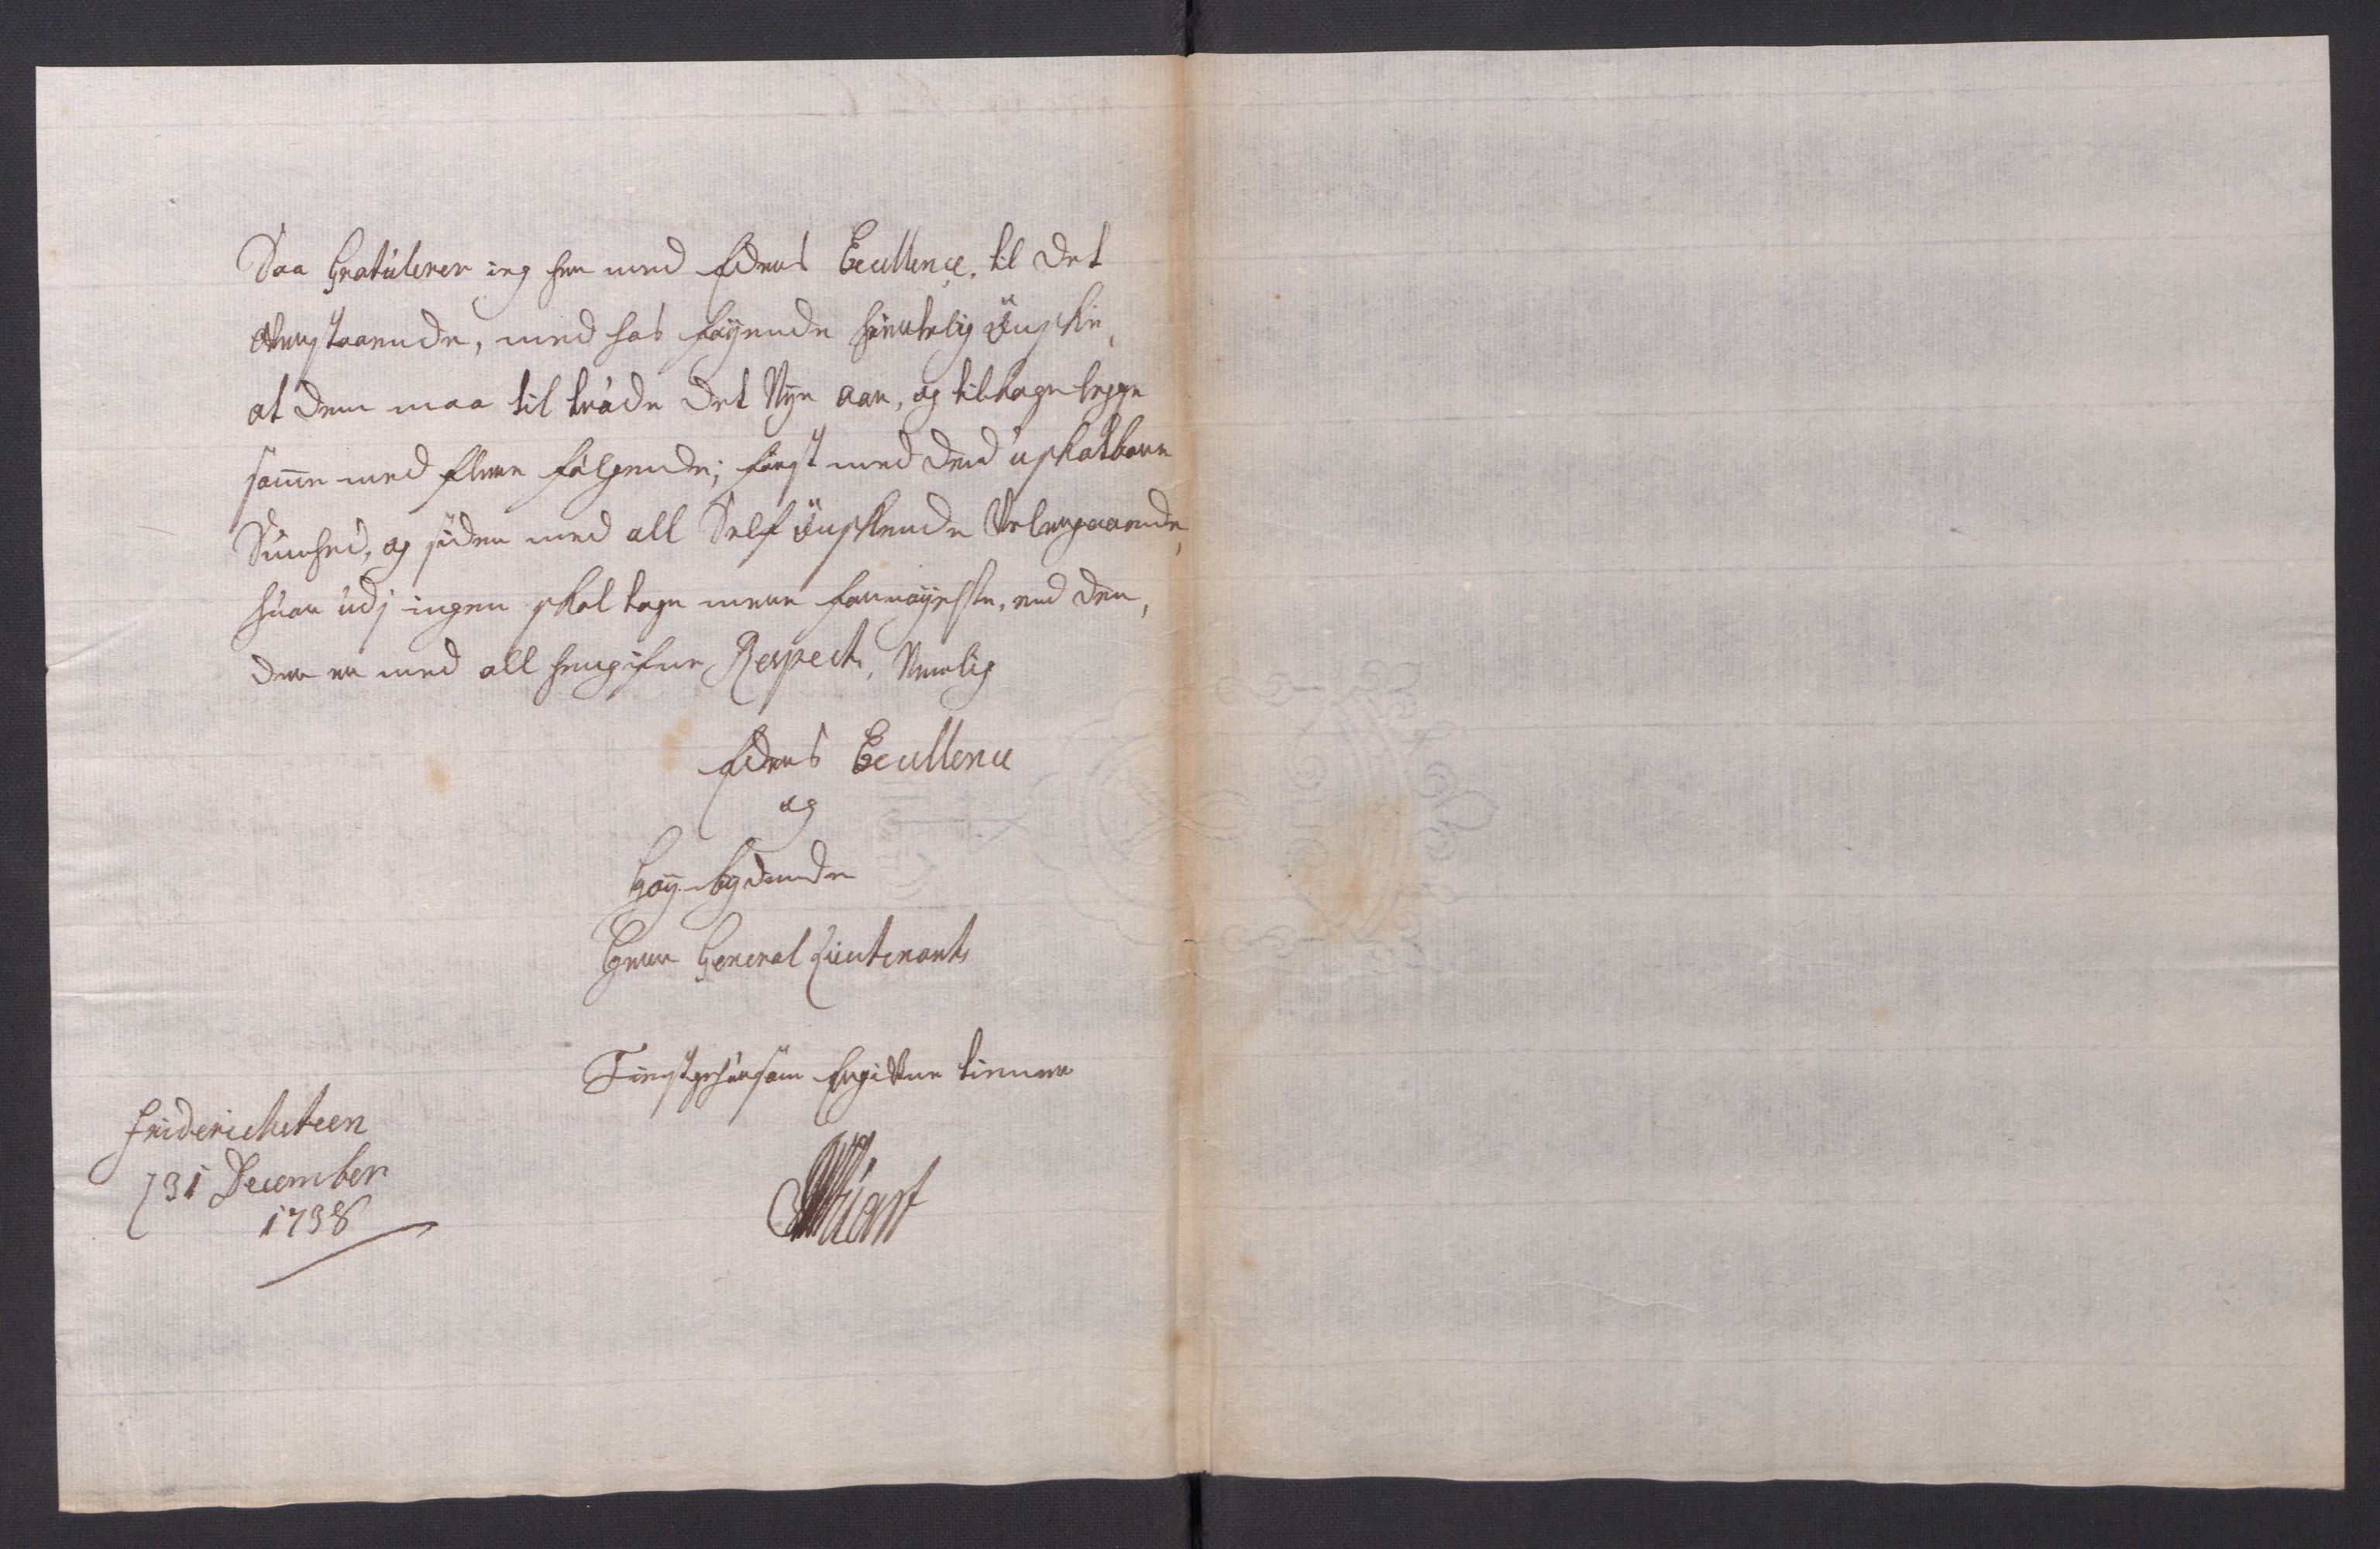 Saa Gratúlerer ieg her med Eders Excellence, til det
Anstaaende, med hos føyende hiertelig Ønskie,
at dem maa til træde det Nye aar, og tilbagelegge
samme med flere følgende; først med dend uskatbare
Sundhed, og siden med all Self Ønskende Velergaaende,
húor údj ingen skal tage mere fornøyelse, end den,
der er med all hengifne Respect, Nemlig
Eders Excellence
og
Høy-bydende
Herr General Lieutenants
Tienstgehórsom Ergifne tienner
Friderichsteen
31 December
1738